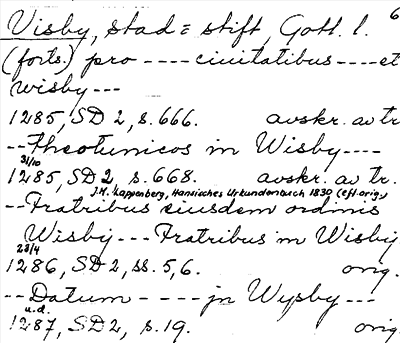 Visby, stad = stift, Gotl. l. 6
(forts.) pro ---- ciuitatibus ---- et
wisby ---
1285, SD 2, s. 666. avskr. av tr
-- Theotunicos in Wisby ----
31/10
1285, SD 2, s. 668. avskr. av tr.
J.M. Lappenberg, Hansisches Urkundenbuch 1830 (eft orig.)
-- Fratribus eiusdem ordinis
Wisby --- Fratribus in Wisby
23/4
1286, SD 2, ss. 5, 6. orig.
-- Datum ---- jn Wysby ---
u.d.
1287, SD 2, s. 19. orig.